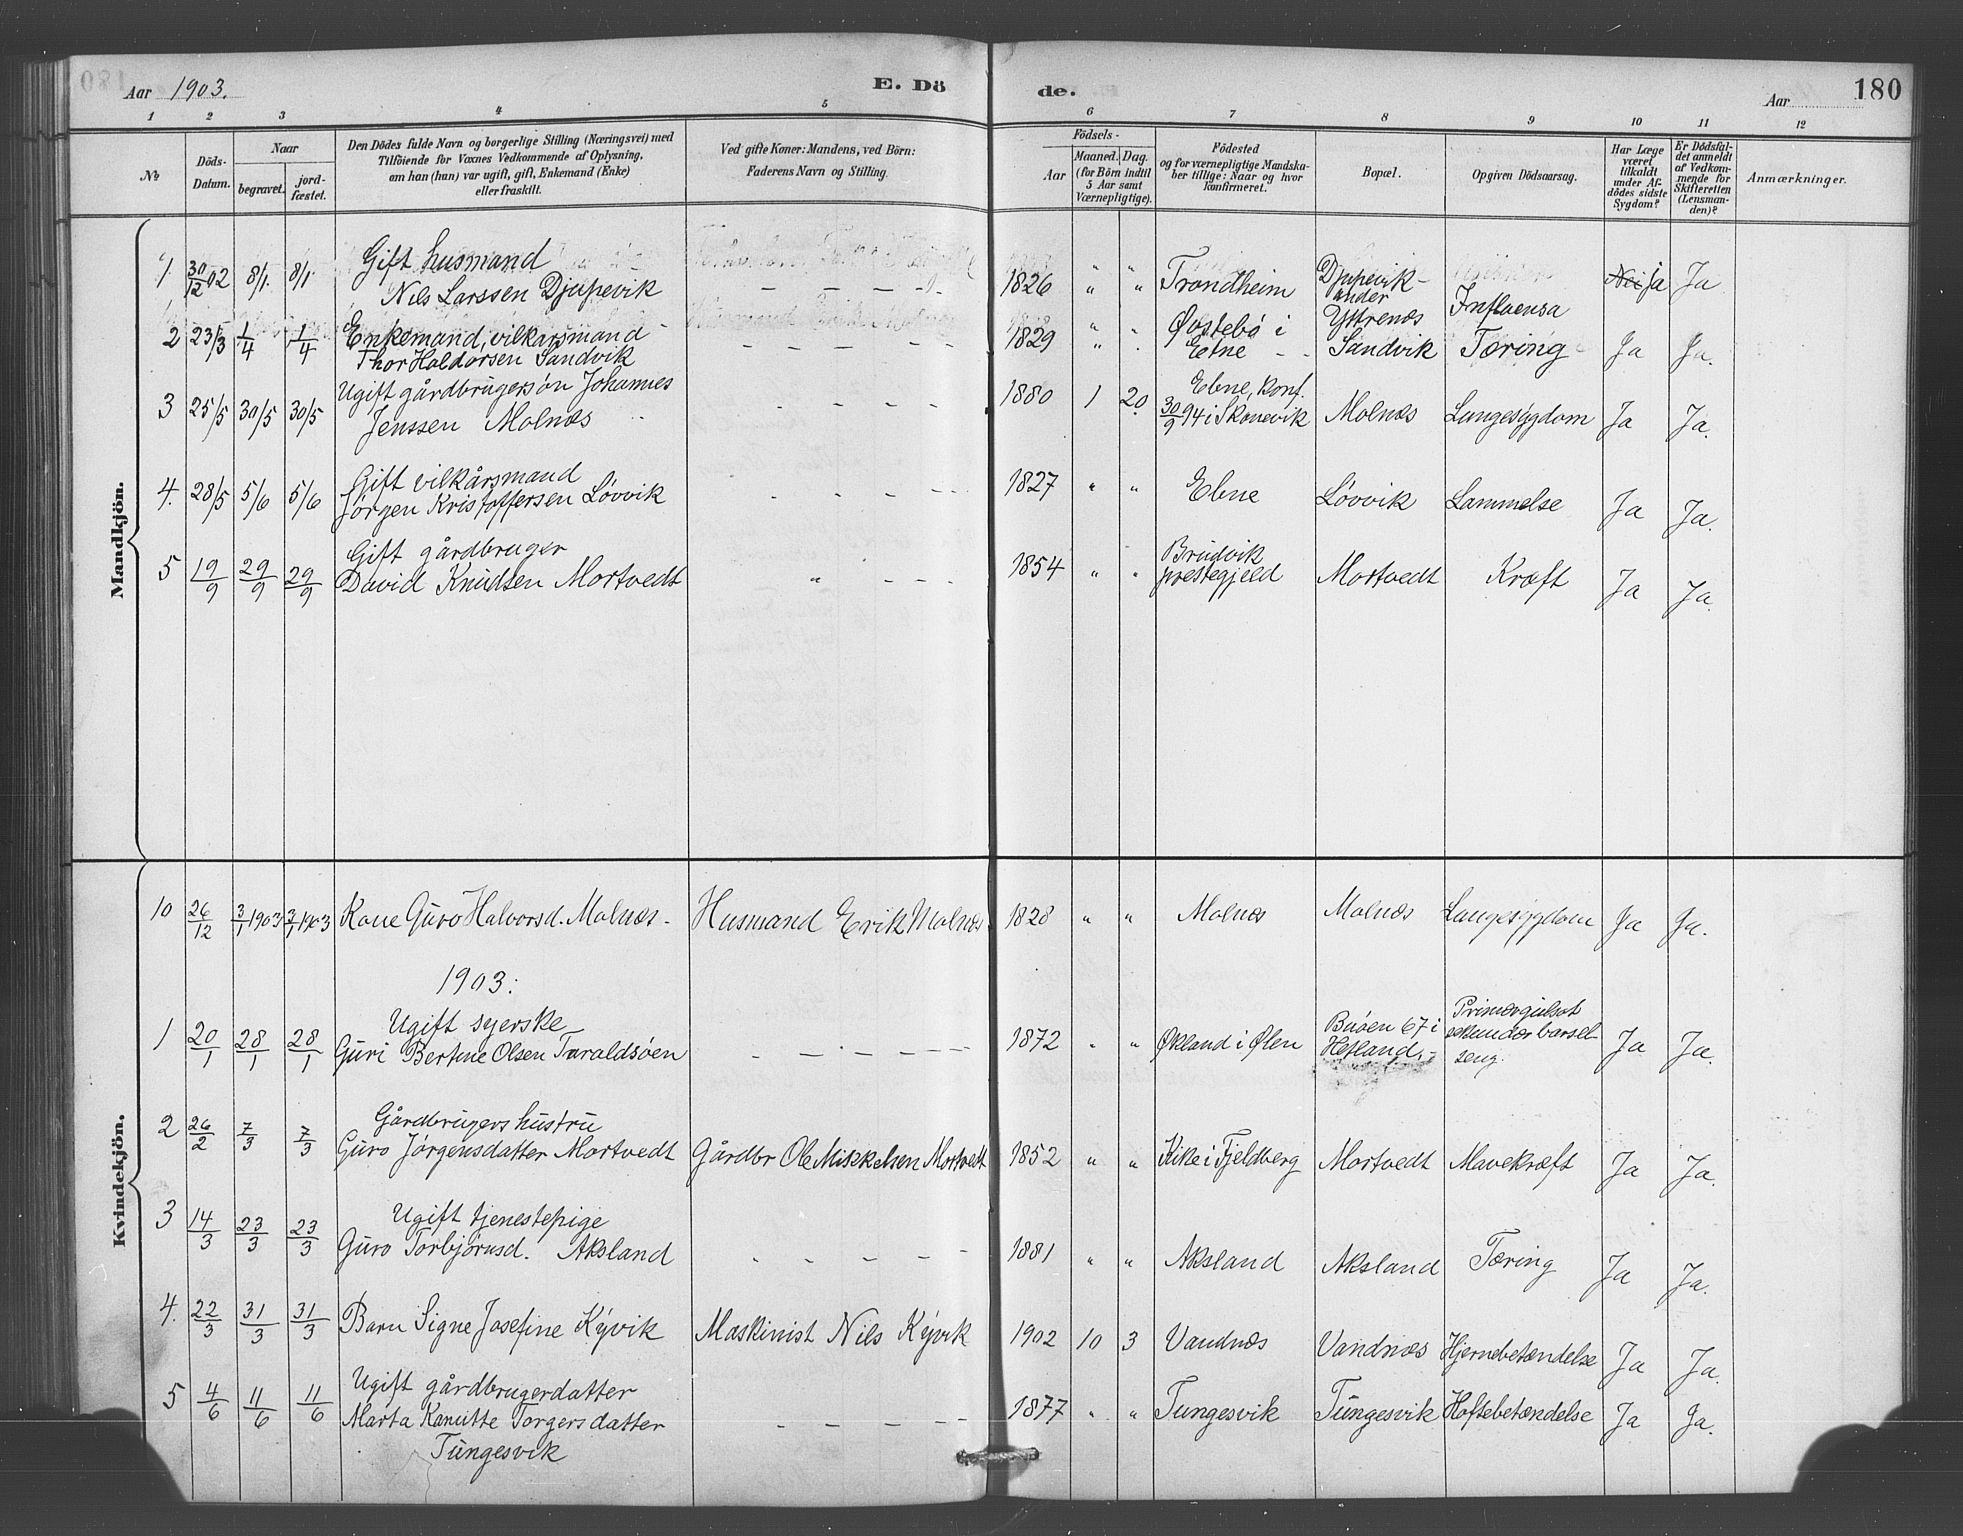 Aar 1903.
E. Dö
de.
Aar
180
1 2 3 4 5 6 7 8 9 10 11 12
No
Döds-Datum.
Naar
begravet.
jord-fæstet.
Den Dödes fulde Navn og borgerlige Stilling (Næringsvei) med
Tilföiende for Voxnes Vedkommende af Oplysning,
om han (hun) var ugift, gift, Enkemand (Enke)
eller fraskilt.
Ved gifte Koner: Mandens, ved Börn:
Faderens Navn og Stilling.
Födsels-
Aar
Maaned. Dag.
(for Börn indtil
5 Aar samt
Værnepligtige).
Födested
og for værnepligtige Mandska-
ber tillige: Naar og hvor
konfirmeret.
Bopæl.
Opgiven Dödsaarsag.
Har Læge
været
tilkaldt
under Af-
dödes sidste
Sygdom?
Er Dödsfal-
det anmeldt
af Vedkom-
mende for
Skifteretten
(Lensman-
den)?
Anmærkninger.
Mandkjön.
1. 30/12 02 8/1. 8/1. Gift husmand
Nils Larssen Djupevik — — — — 1826 " " Trondheim Djupevik under Yttrenes Influensa Nei ja Ja
2 23/3 1/4 1/4 Enkemand, vilkårsmand
Thor Haldorsen Sandvik — — — — — 1829 " " Østebø i Etne Sandvik Tæring Ja Ja.
3 25/5 30/5 30/5 Ugift gårdbrugersøn Johannes
Jenssen Molnæs 1880 1 20 Etne, konf. 30/9 94 i Skonevik Molnæs Lungesygdom Ja Ja.
4. 28/5 5/6 5/6 Gift vilkårsmand
Jørgen Kristoffersen Løvvik 1827 " " Etne Løvvik Lammelse Ja Ja.
5 19/9 29/9 29/9 Gift gårdbruger
David Knudsen Mortvedt " — — — 1854 " " Brudvik prestegjeld Mortvedt Kræft Ja Ja.
Kvindekjön.
10 26/12 3/1 1903 3/1 1903 Kone Guro Halvorsd. Molnæs. Husmand Erik Molnæs 1828 " " Molnæs Molnæs Lungesygdom Ja Ja.
1903:
1 20/1 28/1 28/1 Ugift syerske
Guri Bertine Olsen Taraldsøen — — — — — 1872 " " Økland i Ølen Buøen 67 i Hetland. Primær gulsot sekundær barsel-seng. Ja Ja.
2 26/2 7/3 7/3 Gårdbrugers hustru
Guro Jørgensdatter Mortvedt Gårdbr Ole Mikkelsen Mortvedt 1852 " " Kike i Fjeldberg Mortvedt Mavekræft Ja Ja.
3 14/3 23/3 23/3 Ugift tjenestepige
Guro Torbjørnsd. Aksland 1881 " " Aksland Aksland Tæring Ja Ja.
4. 22/3 31/3 31/3 Barn Signe Josefine Kyvik Maskinist Nils Kyvik 1902 10 3 Vandnæs Vandnæs Hjernebetændelse Ja Ja.
5 4/6 11/6 11/6 Ugift gårdbrugerdatter
Marta Kanutte Torgersdatter
Tungesvik — — — — 1877 " " Tungesvik Tungesvik Hoftebetændelse Ja Ja.